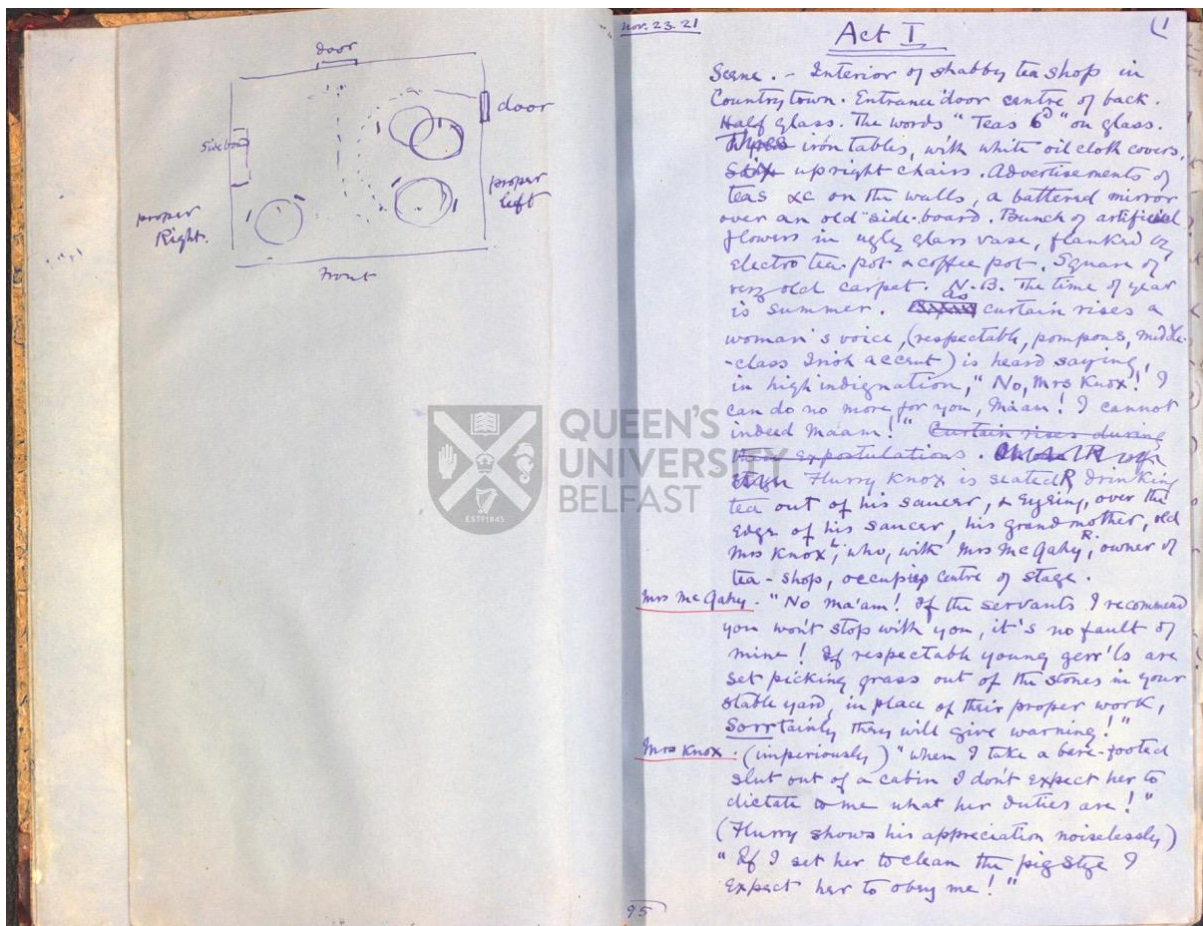 door
door
Sideboard
proper
left
proper
Right.
Front
Nov. 23. 21
Act I
(1
Scene. - Interior of shabby tea shop in
Country town. Entrance door centre of back.
Half glass. The words "Teas 6d" on glass.
Three iron tables, with white oil cloth covers,
Six upright chairs. Advertisements of
teas &c on the walls, a battered mirror
over an old side-board. Bunch of artificial
flowers in ugly glass vase, flanked by
electro tea-pot & coffee pot. Square of
very old carpet. N.B. The time of year
is summer. as curtain rises a
woman's voice, (respectable, pompous, middle-
-class Irish accent) is heard saying,
in high indignation, "No, Mrs Knox! I
can do no more for you, Ma'am! I cannot
indeed Ma'am!" Curtain rises during
expostulations.
Flurry Knox is seated R, drinking
tea out of his saucer, & eyeing, over the
edge of his saucer, his grandmother, old
Mrs Knox L, who, with Mrs McGahy R, owner of
tea-shop, occupies centre of stage.
Mrs McGahy. "No ma'am! If the servants I recommend
you won't stop with you, it's no fault of
mine! If respectable young gerr'ls are
set picking grass out of the stones in your
stable yard, in place of their proper work,
Sorrtainly they will give warning!"
Mrs Knox. (imperiously) "When I take a bare-footed
slut out of a cabin I don't expect her to
dictate to me what her duties are!"
(Flurry shows his appreciation noiselessly)
"If I set her to clean the pig stye I
expect her to obey me!"
95
QUEEN'S
UNIVERSITY
BELFAST
ESTD 1845